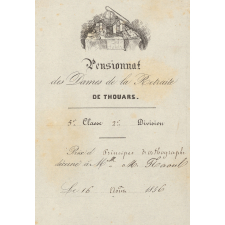 Pensionnat
des Dames de la Retraite
DE THOUARS.
3e Classe 2e Division
Prix d' Principes d'orthographe
décerné à Mlle M. Raoul
Le 16 Août 1856